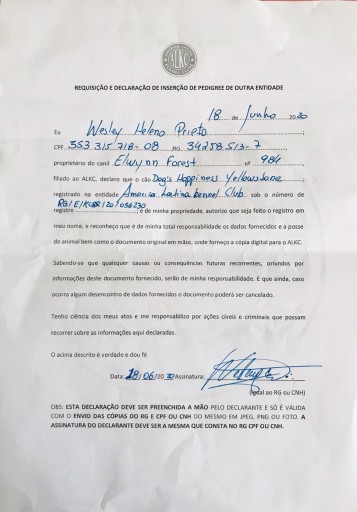 ALKC
REQUISIÇÃO E DECLARAÇÃO DE INSERÇÃO DE PEDIGREE DE OUTRA ENTIDADE
18 de Junho 2020
Eu Wesley Heleno Prieto
CPF 353 315 718-08 RG 34258513-7
proprietário do canil Elwynn Forest nº 984
filiado ao ALKC, declaro que o cão Dog's Happiness Yellowstone
registrado na entidade America Latina Kennel Club sob o número de
registro RG/E/KCBR/20/056230 ; é de minha propriedade, autorizo que seja feito o registro em
meu nome, e reconheço que é de minha total responsabilidade os dados fornecidos e a posse
do animal bem como o documento original em mãos, onde forneço a cópia digital para o ALKC.
Sabendo-se que quaisquer causas ou consequências futuras recorrentes, oriundos por
informações deste documento fornecido, serão de minha responsabilidade. E que ainda, caso
ocorra algum desencontro de dados fornecidos o documento poderá ser cancelado.
Tenho ciência dos meus atos e me responsabilizo por ações cíveis e criminais que possam
recorrer sobre as informações aqui declaradas.
O acima descrito é verdade e dou fé
Data: 18/06/2020 Assinatura:
(igual ao RG ou CNH)
OBS: ESTA DECLARAÇÃO DEVE SER PREENCHIDA A MÃO PELO DECLARANTE E SÓ É VÁLIDA
COM O ENVIO DAS CÓPIAS DO RG E CPF OU CNH DO MESMO EM JPEG, PNG OU FOTO. A
ASSINATURA DO DECLARANTE DEVE SER A MESMA QUE CONSTA NO RG CPF OU CNH.